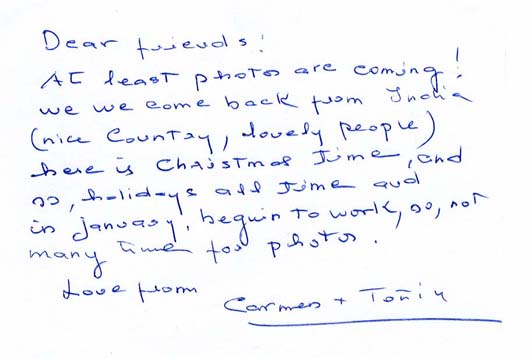 Dear friends:
At least photos are coming!
we we come back from India
(nice Country, lovely people)
here is Christmas time, and
so, holidays all time and
in january, begin to work, so, not
many time for photos.
Love from
Carmen + Toñin